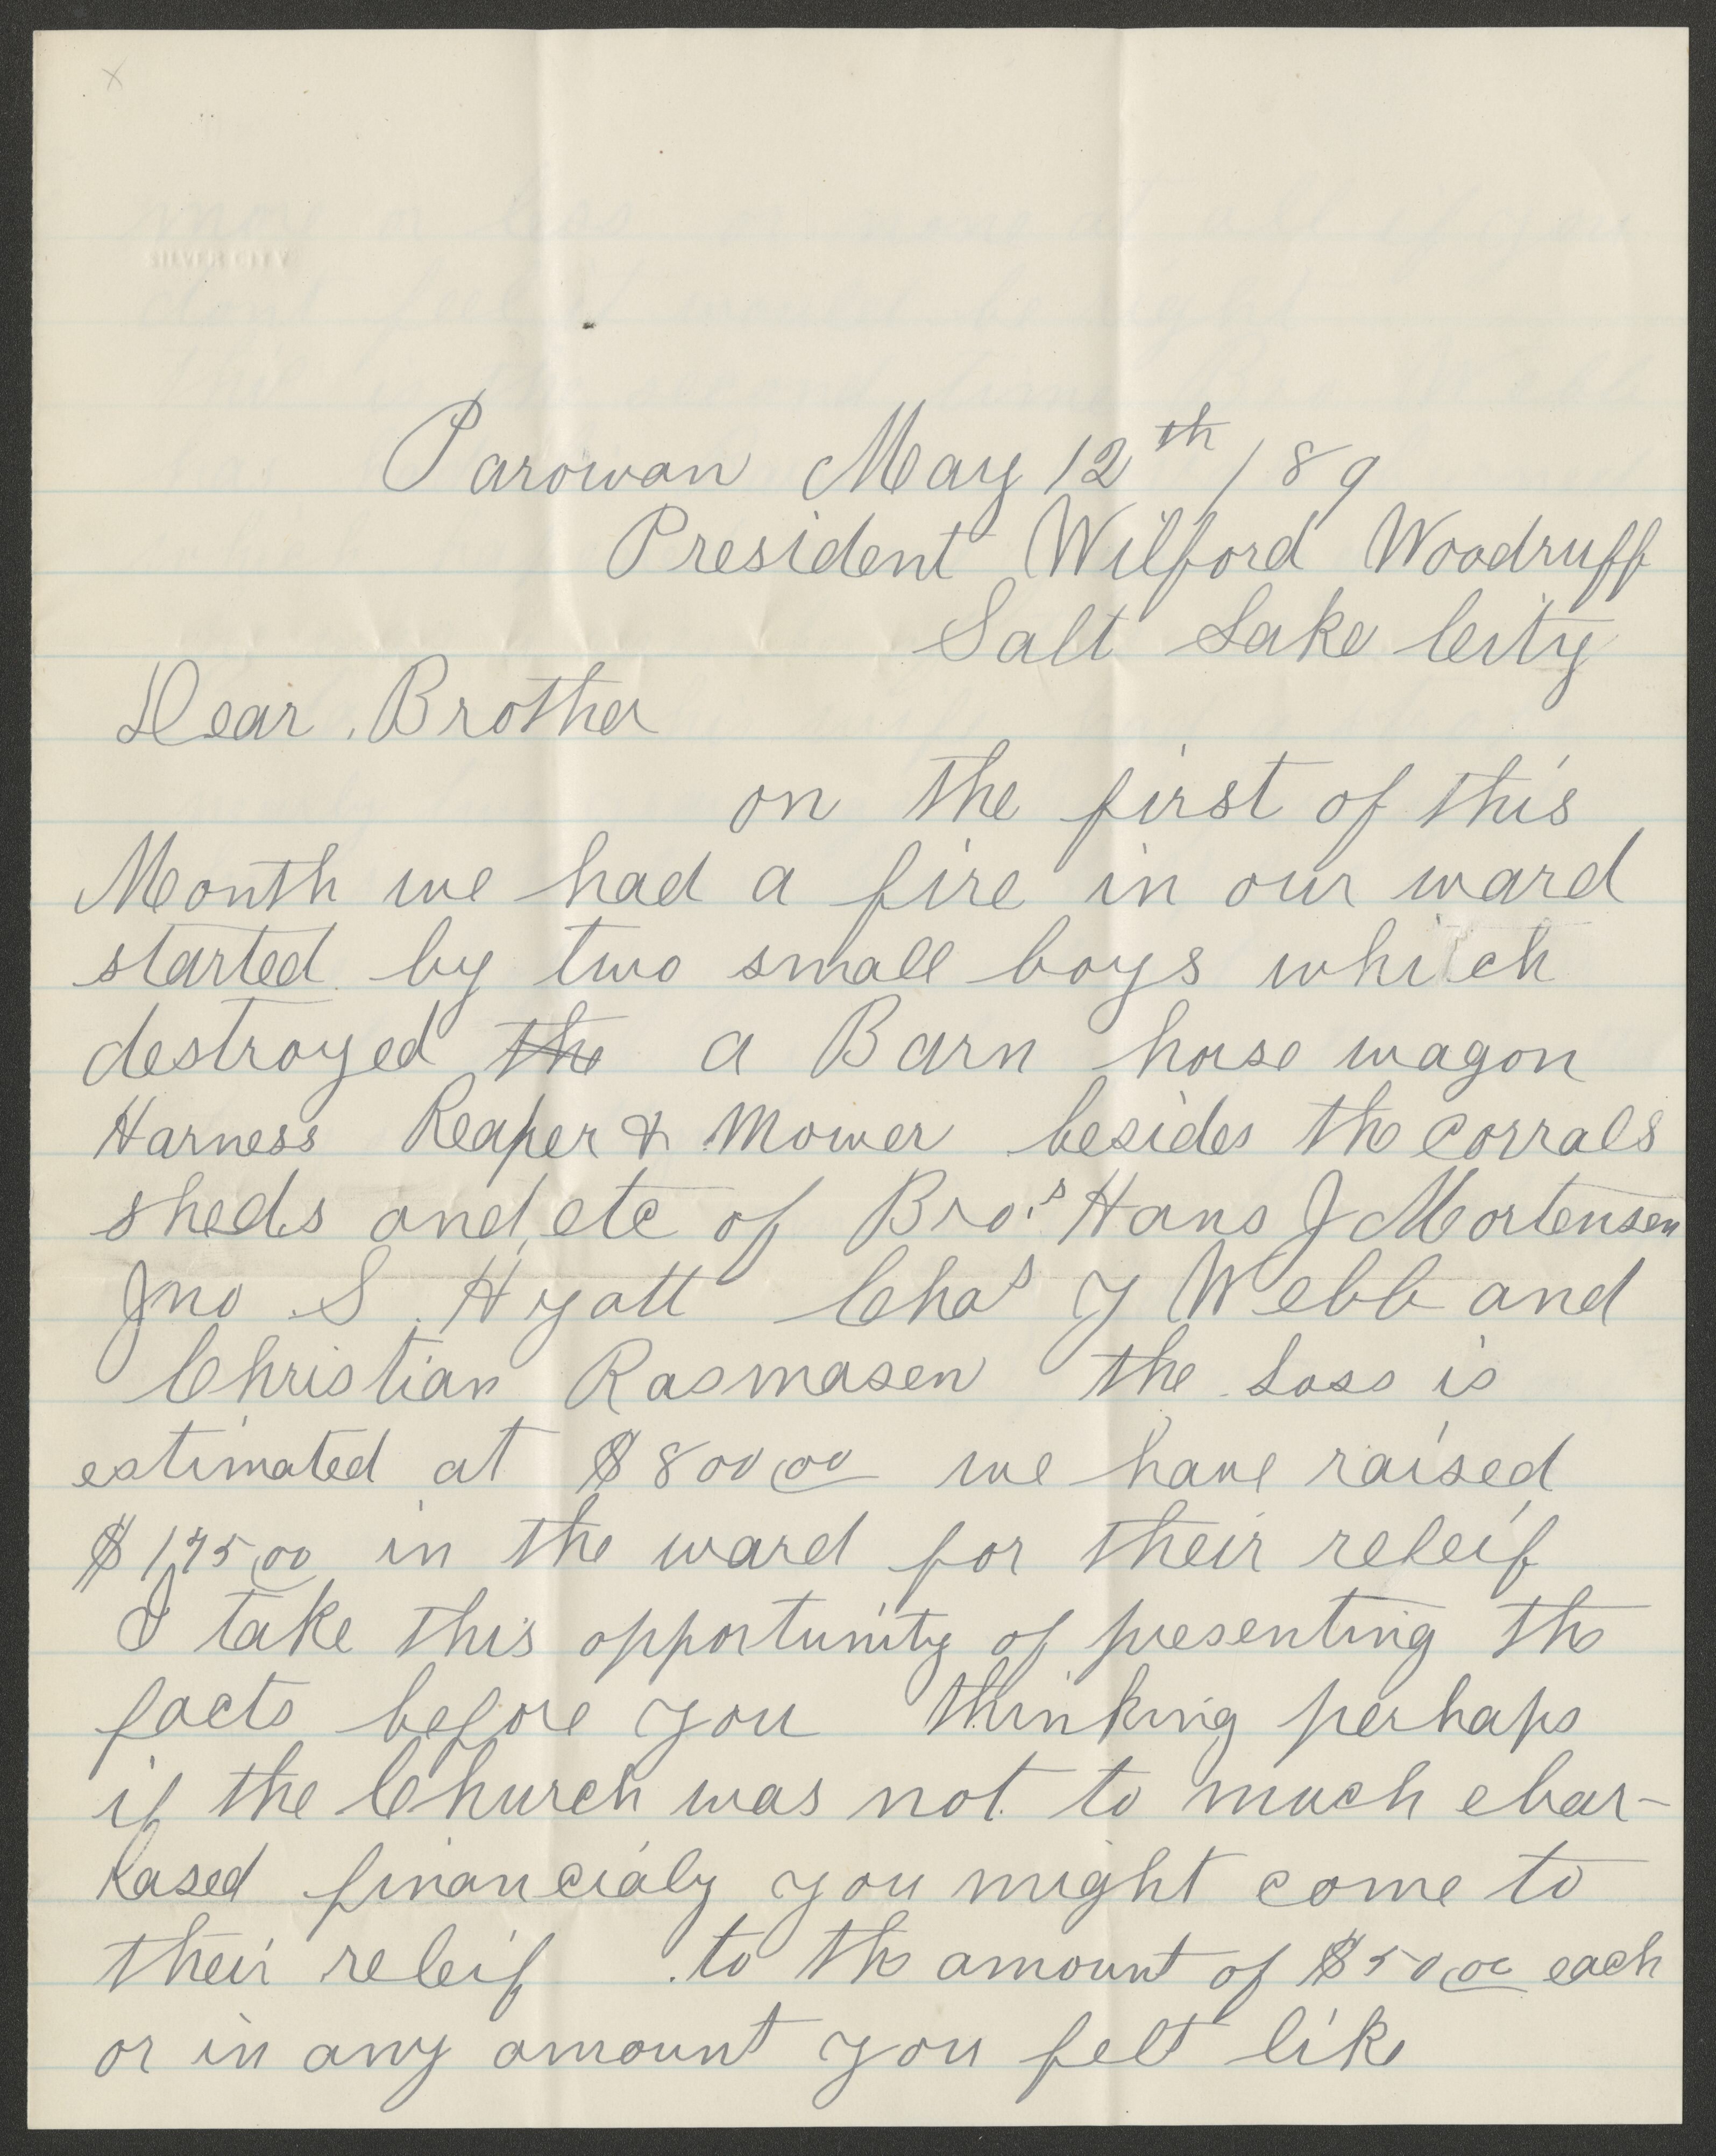 SILVER CITY
Parowan May 12th /89
President Wilford Woodruff
Salt Lake City
Dear Brother
on the first of this
Month we had a fire in our ward
started by two small boys which
destroyed the a Barn horse wagon
Harness Reaper & Mower besides the corrals
sheds and etc of Bro.s Hans J Mortensen
Jno S. Hyatt Chas Y Webb and
Christian Rasmasen the Loss is
estimated at $800.00 we have raised
$175.00 in the ward for their releif
I take this opportunity of presenting the
facts before you thinking perhaps
if the Church was not to much ebar-
rased financialy you might come to
their releif to the amount of $50.00 each
or in any amount you felt like